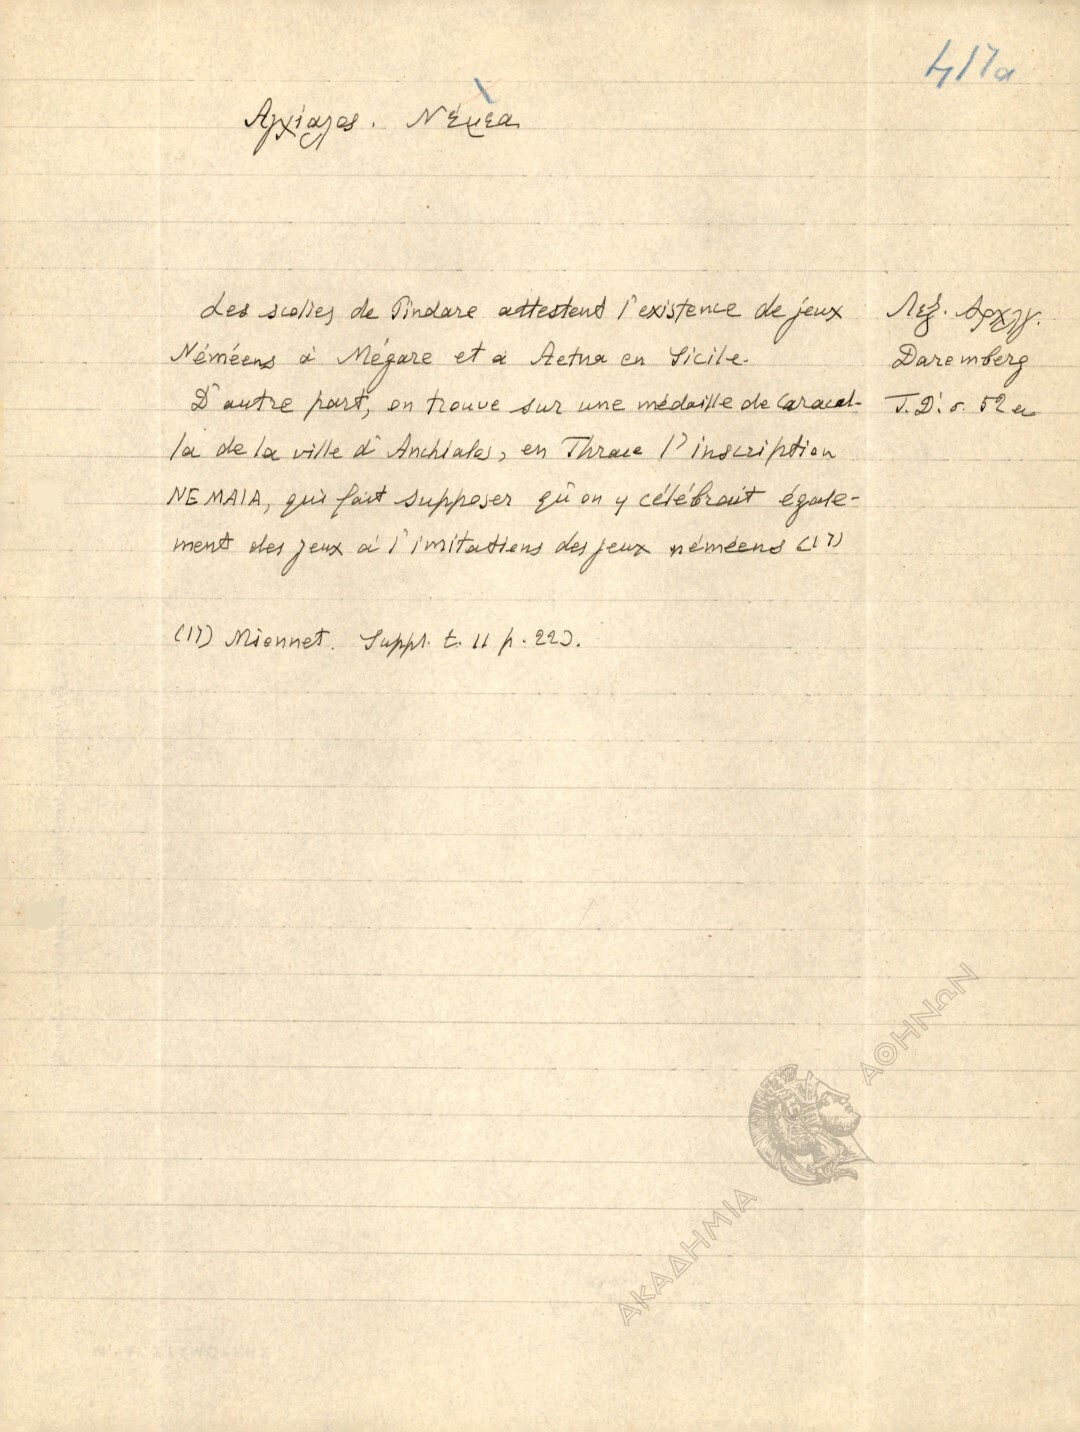 417a
Αγχίαλος. Νέμεα
Les scolies de Pindare attestent l'existence de jeux
Néméens à Mégare et à Aetna en Sicile.
D'autre part, on trouve sur une médaille de Caracal-
la de la ville d'Anchialos, en Thrace l'inscription
NEMAIA, qui fait supposer qu'on y célébrait égale-
ment des jeux à l'imitations des jeux néméens (17)
(17) Mionnet. Suppl. t. II p. 223.
Λεξ. Αρχλγ.
Daremberg
T.Δ'. σ. 52 a
ΑΚΑΔΗΜΙΑ ΑΘΗΝΩΝ